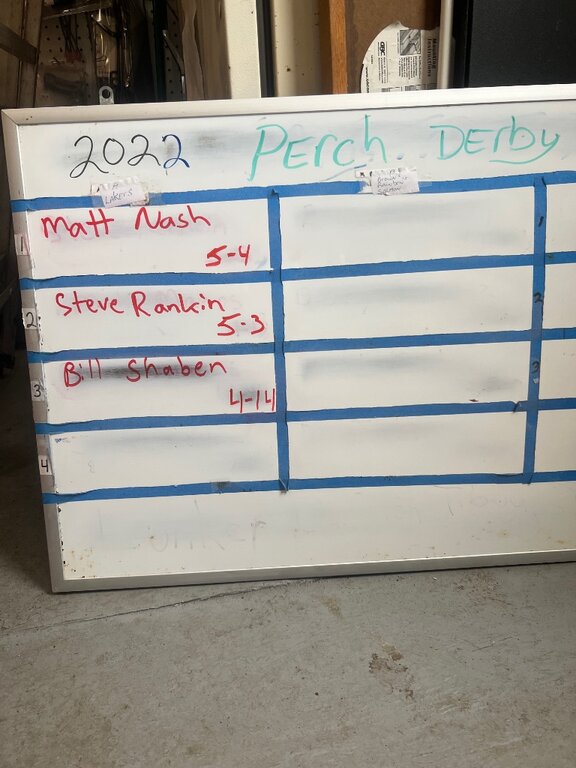 2022 PErch. DErby
LAKERS
Brown
Rainbow
Salmon
1 Matt Nash
5-4
2 Steve Rankin
5-3
2
3 Bill Shaben
4-14
3
4